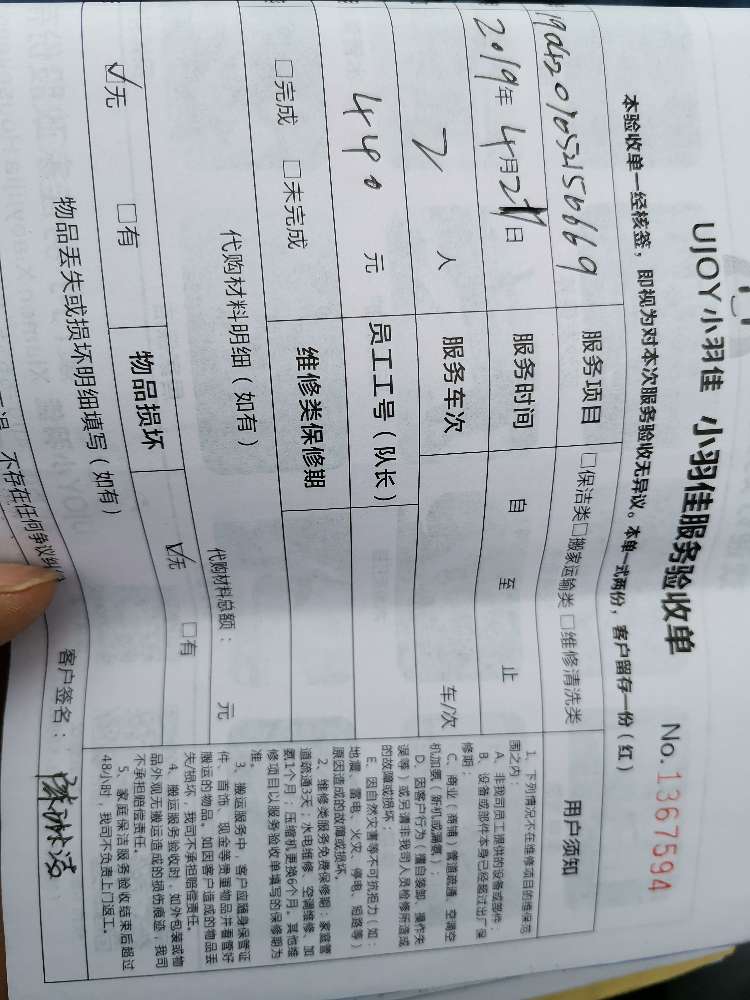 UJOY小羽佳 小羽佳服务验收单 No.1367594
本验收单一经核签，即视为对本次服务验收无异议。本单一式两份，客户留存一份（红）
服务项目 □保洁类□搬家运输类 □维修清洗类
2019年4月2 日 服务时间 自 至 止
2 人 服务车次 车/次
440 元 员工工号（队长）
□完成 □未完成 维修类保修期
代购材料明细（如有） 代购材料总额： 元
☑无 □有 物品损坏 ☑无 □有
物品丢失或损坏明细填写（如有）
不存在任何争议纠
客户签名：
用户须知
1、下列情况不在维修项目的维保范
围之内：
A、非我司员工提供的设备或部件；
B、设备或部件本身已经超过出厂保
修期；
C、商业（商铺）管道疏通、空调空
机加氨（新机或漏氨）；
D、因客户行为（擅自装卸、操作失
误等）或另请非我司人员检修所造成
的故障或损坏；
E、因自然灾害等不可抗拒力（如：
地震、雷电、火灾、停电、短路等）
原因造成的故障或损坏。
2、维修类服务免费保修期：家庭管
道疏通3天；水电维修、空调维修、加
氨1个月；压缩机更换6个月。其他维
修项目以服务验收单填写的保修期为
准。
3、搬运服务中，客户应随身保管证
件、首饰、现金等贵重物品并看管好
搬运的物品。如因客户造成的物品丢
失/损坏，我司不承担赔偿责任。
4、搬运服务验收时，如外包装或物
品外观无搬运造成的损伤痕迹，我司
不承担赔偿责任。
5、家庭保洁服务验收结束后超过
48小时，我司不负责上门返工。